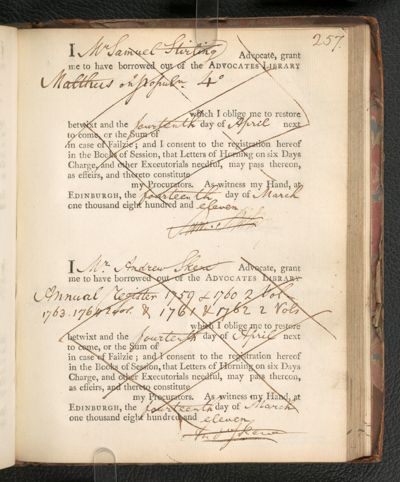 257.
I Mr Samuel Stirling Advocate, grant
me to have borrowed out of the ADVOCATES LIBRARY
Malthus on populn. 4o
which I oblige me to restore
betwixt and the fourteenth day of April next
to come, or the Sum of
in case of Failzie; and I consent to the registration hereof
in the Books of Session, that Letters of Horning on six Days
Charge, and other Executorials needful, may pass thereon,
as effeirs, and thereto constitute
my Procurators. As witness my Hand, at
EDINBURGH, the fourteenth day of March
one thousand eight hundred and eleven
I Mr. Andrew Skene Advocate, grant
me to have borrowed out of the ADVOCATES LIBRARY
Annual Register 1759 & 1760 2 Vol
1763. 1764 2 vol. & 1761 & 1762 2 Vols
which I oblige me to restore
betwixt and the fourteenth day of April next
to come, or the Sum of
in case of Failzie; and I consent to the registration hereof
in the Books of Session, that Letters of Horning on six Days
Charge, and other Executorials needful, may pass thereon,
as effeirs, and thereto constitute
my Procurators. As witness my Hand, at
EDINBURGH, the fourteenth day of March
one thousand eight hundred and eleven